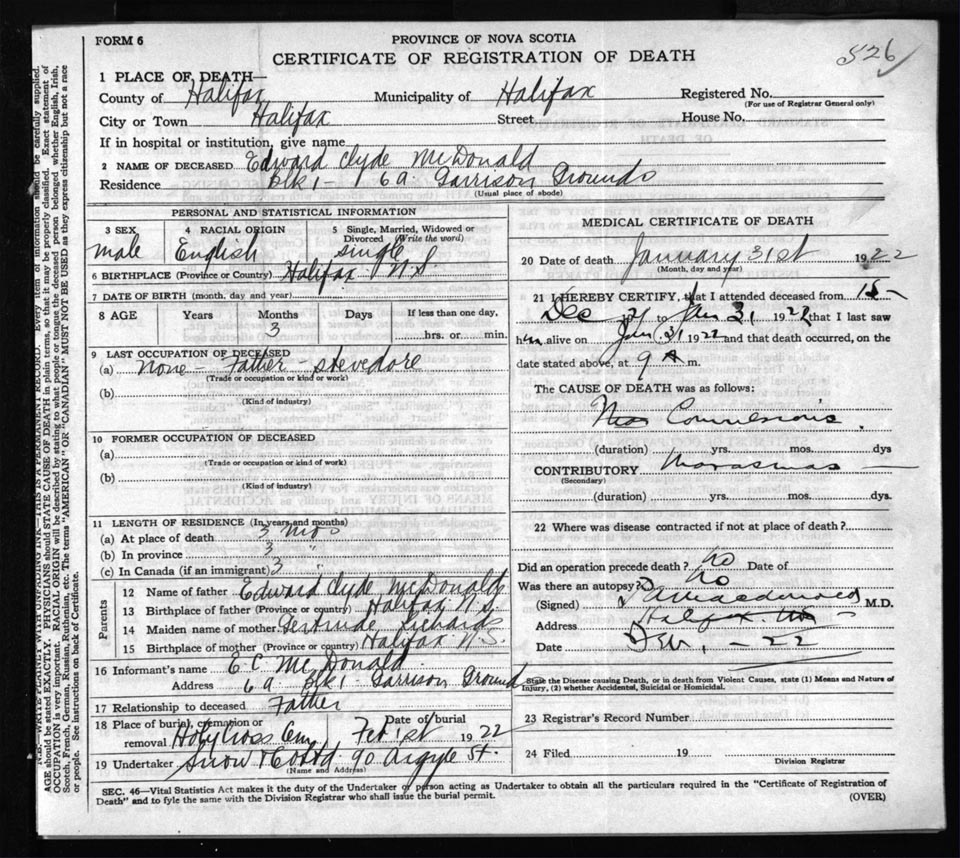 FORM 6
PROVINCE OF NOVA SCOTIA
CERTIFICATE OF REGISTRATION OF DEATH
526
1 PLACE OF DEATH—
County of Halifax Municipality of Halifax Registered No.
(For use of Registrar General only)
City or Town Halifax Street House No.
If in hospital or institution, give name
2 NAME OF DECEASED Edward Clyde McDonald
Residence Blk 1 - 6a. Garrison Grounds
(Usual place of abode)
PERSONAL AND STATISTICAL INFORMATION
3 SEX 4 RACIAL ORIGIN 5 Single, Married, Widowed or Divorced (Write the word)
male English single
6 BIRTHPLACE (Province or Country) Halifax N.S.
7 DATE OF BIRTH (month, day and year)
8 AGE Years Months Days If less than one day,
3 hrs. or min.
9 LAST OCCUPATION OF DECEASED
(a) none - Father - stevedore
(Trade or occupation or kind of work)
(b)
(Kind of industry)
10 FORMER OCCUPATION OF DECEASED
(a)
(Trade or occupation or kind of work)
(b)
(Kind of industry)
11 LENGTH OF RESIDENCE (In years and months)
(a) At place of death 3 mos
(b) In province 3 "
(c) In Canada (if an immigrant) 3
Parents
12 Name of father Edward Clyde McDonald
13 Birthplace of father (Province or country) Halifax N.S.
14 Maiden name of mother Gertrude Richards
15 Birthplace of mother (Province or country) Halifax N.S.
16 Informant's name E. C. McDonald
Address 6a Blk 1 - Garrison Ground
17 Relationship to deceased Father
18 Place of burial, cremation or removal Holy Cross Cem Date of burial Feb 1st 1922
19 Undertaker Snow & Co Ltd 90 Argyle St.
(Name and Address)
MEDICAL CERTIFICATE OF DEATH
20 Date of death January 31st 1922
(Month, day and year)
21 I HEREBY CERTIFY, that I attended deceased from 15
Dec 21 to Jan 31 1922 that I last saw
him alive on Jan 31 1922 and that death occurred, on the
date stated above, at 9 A m.
The CAUSE OF DEATH was as follows:
Convulsions
(duration) yrs. mos. dys
CONTRIBUTORY Marasmus
(Secondary)
(duration) yrs. mos. dys.
22 Where was disease contracted if not at place of death?
Did an operation precede death? No Date of
Was there an autopsy? No
(Signed) Macdonald M.D.
Address Halifax
Date Feb 1 - 22
State the Disease causing Death, or in death from Violent Causes, state (1) Means and Nature of Injury, (2) whether Accidental, Suicidal or Homicidal.
23 Registrar's Record Number
24 Filed 19
Division Registrar
SEC. 46—Vital Statistics Act makes it the duty of the Undertaker or person acting as Undertaker to obtain all the particulars required in the "Certificate of Registration of
Death" and to fyle the same with the Division Registrar who shall issue the burial permit.
(OVER)
N.B.—WRITE PLAINLY WITH UNFADING INK—THIS IS A PERMANENT RECORD. Every item of information should be carefully supplied.
AGE should be stated EXACTLY. PHYSICIANS should STATE CAUSE OF DEATH in plain terms, so that it may be properly classified. Exact statement of
OCCUPATION is very important. RACIAL ORIGIN will be described by stating to what people or tongue the deceased person belonged whether English, Irish,
Scotch, French, German, Russian, Ruthenian, etc. The terms "AMERICAN" OR "CANADIAN" MUST NOT BE USED as they express citizenship but not a race
or people. See instructions on back of Certificate.